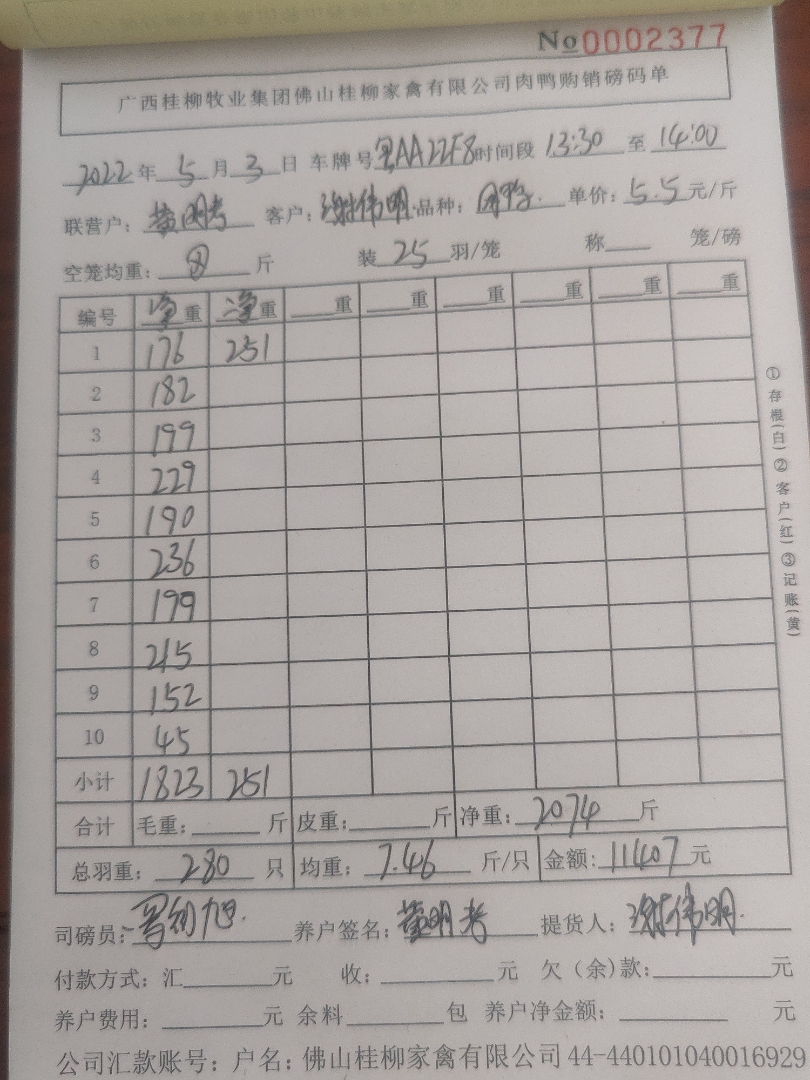 No 0002377
广西桂柳牧业集团佛山桂柳家禽有限公司肉鸭购销磅码单
2022年5月3日 车牌号AA22F8时间段13:30至14:00
联营户： 客户：谢伟明 品种： 单价：5.5元/斤
空笼均重：斤 装25羽/笼 称 笼/磅
编号 净重 净重 重 重 重 重 重 重
1 176 251
2 182
3 199
4 229
5 190
6 236
7 199
8 215
9 152
10 45
小计 1823 251
合计 毛重：斤 皮重：斤 净重：2074斤
总羽重：280只 均重：7.46斤/只 金额：11407元
司磅员： 养户签名： 提货人：谢伟明
付款方式：汇元 收：元 欠（余）款：元
养户费用：元 余料包 养户净金额：元
公司汇款账号：户名：佛山桂柳家禽有限公司 44-440101040016929
①存根(白)②客户(红)③记账(黄)